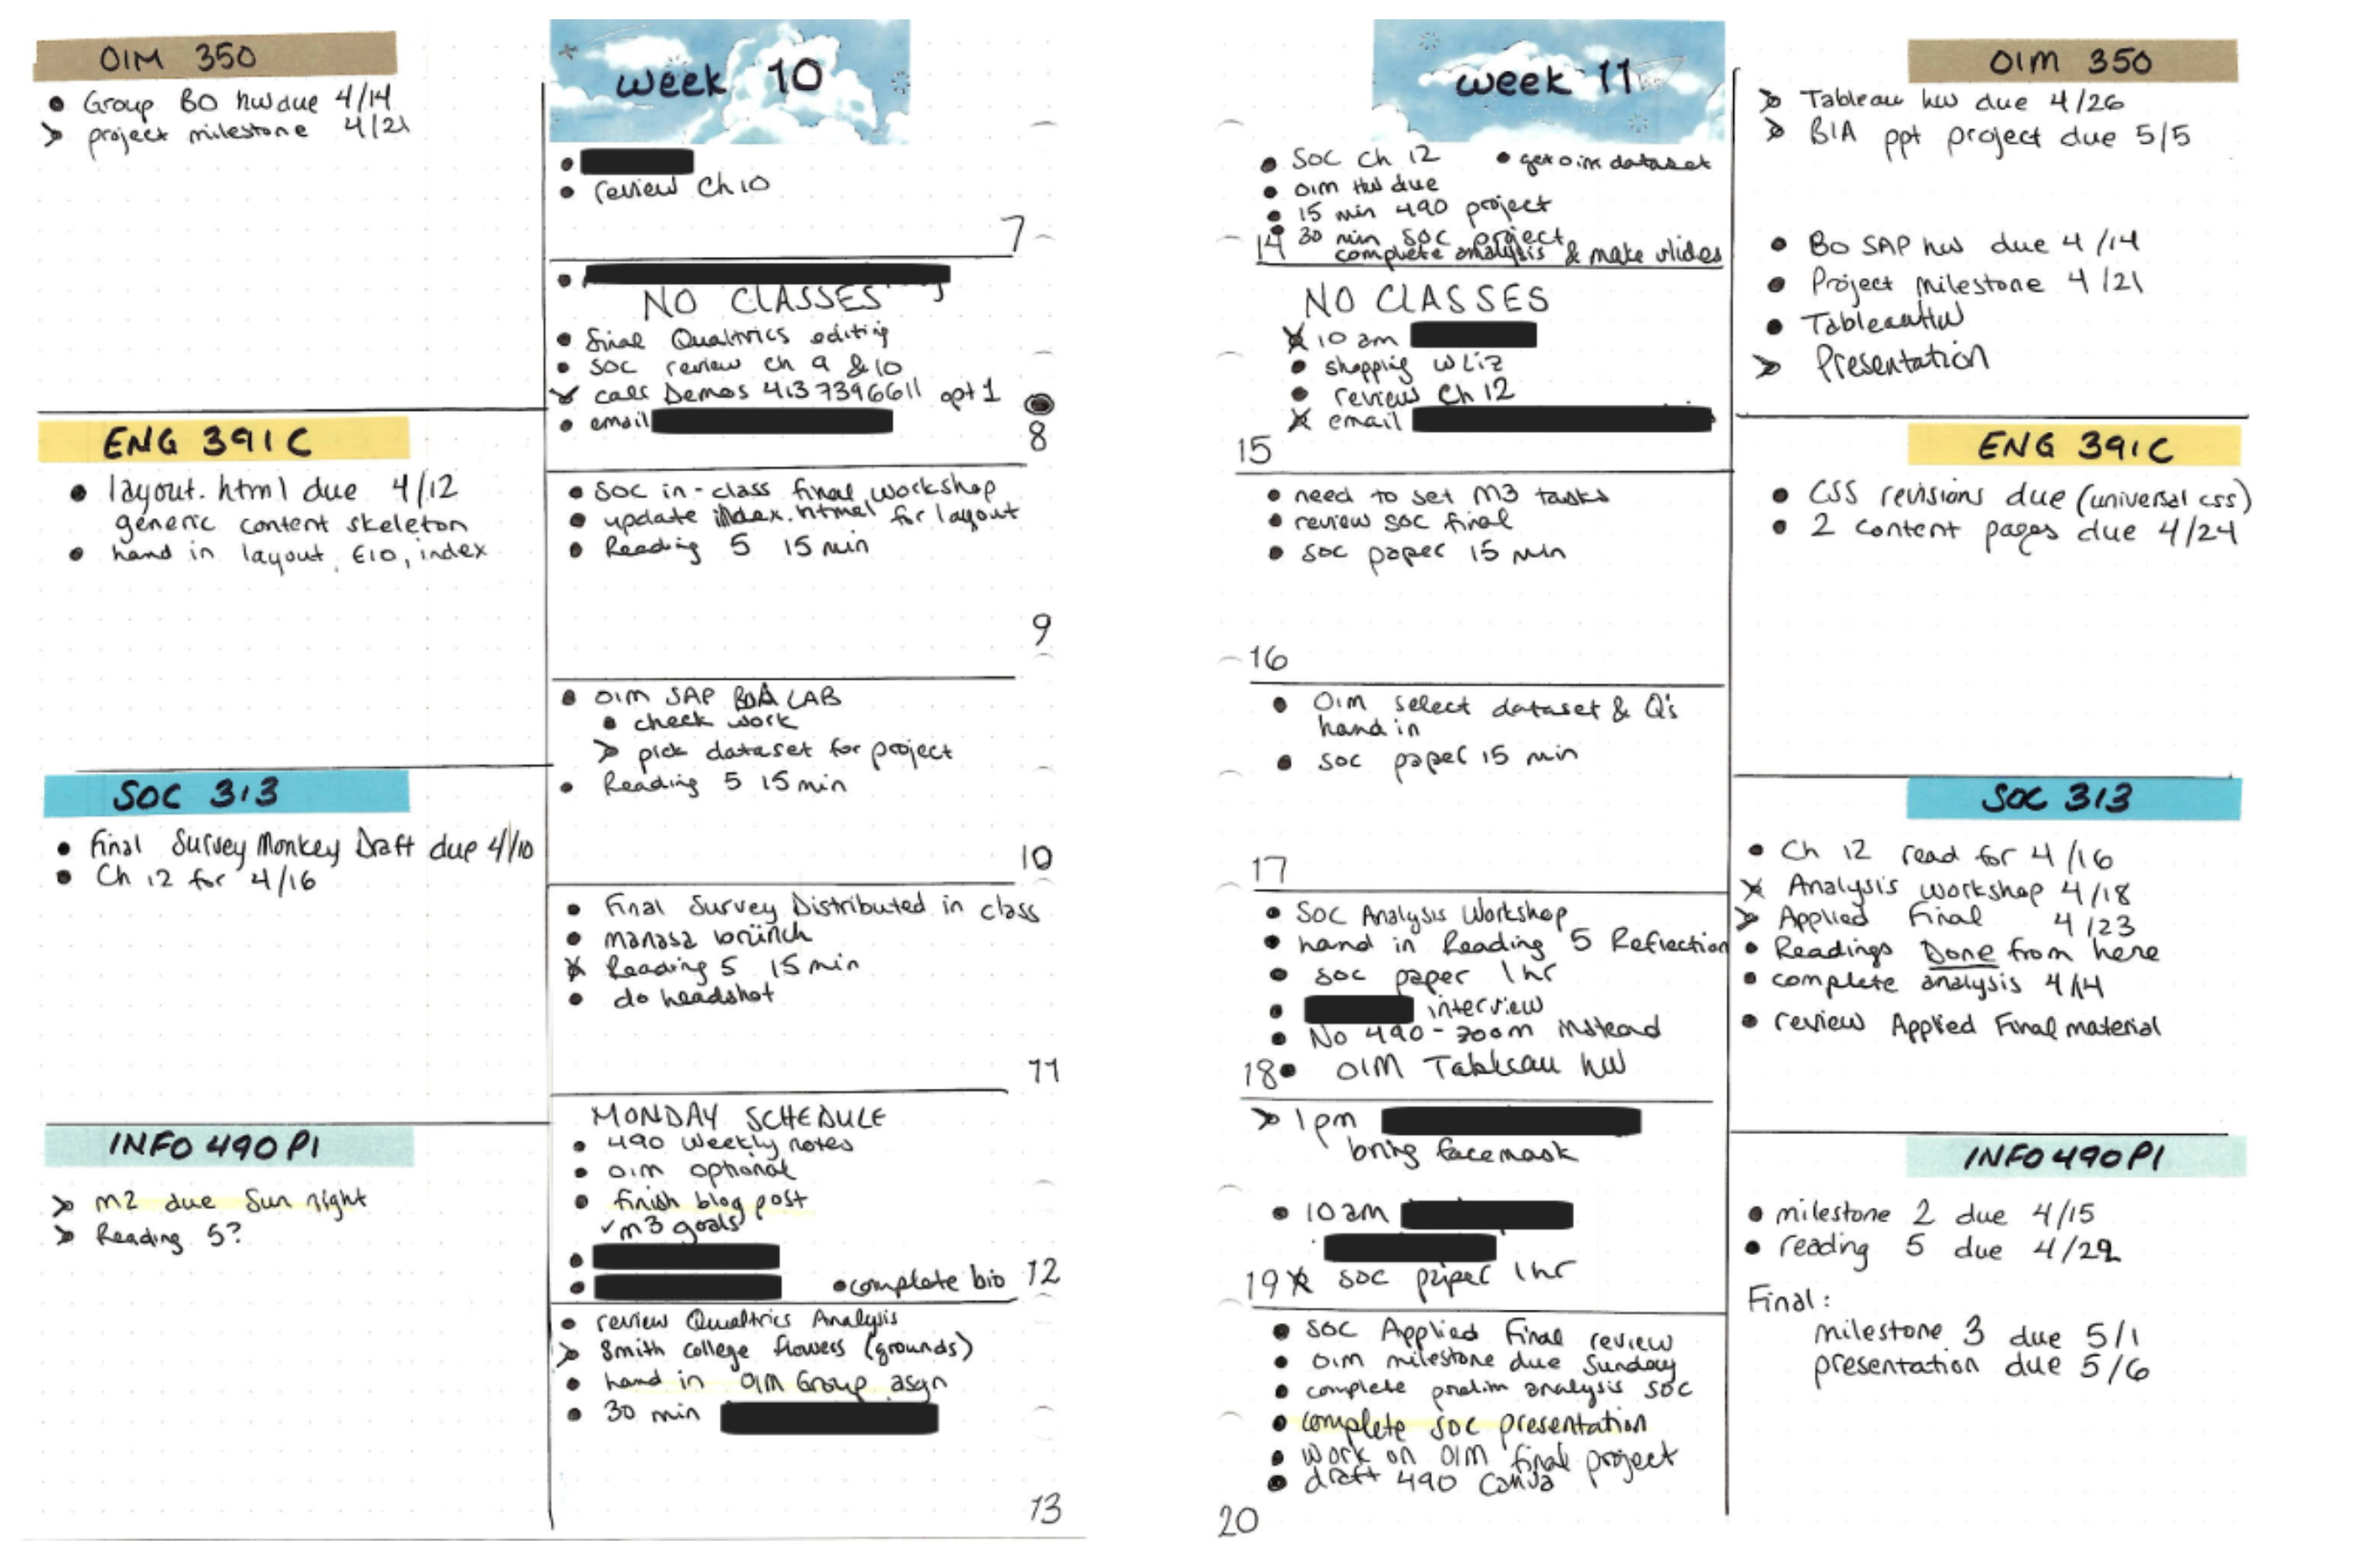 OIM 350
Group BO hw due 4/14
project milestone 4/21
ENG 391C
layout.html due 4/12
generic content skeleton
hand in layout, E10, index
SOC 313
Final Survey Monkey Draft due 4/10
Ch 12 for 4/16
INFO 490PI
m2 due Sun night
Reading 5?
week 10
review Ch 10
7
NO CLASSES
final Qualtrics editing
SOC review ch 9 & 10
call Demos 413 7396611 opt 1
email
8
SOC in-class final workshop
update index.html for layout
Reading 5 15 min
9
OIM SAP BOA LAB
check work
pick dataset for project
Reading 5 15 min
10
Final Survey Distributed in class
manasa brunch
Reading 5 15 min
do headshot
11
MONDAY SCHEDULE
490 Weekly notes
OIM optional
finish blog post
m3 goals
complete bio
12
review Qualtrics Analysis
Smith college flowers (grounds)
hand in OIM Group asgn
30 min
13
week 11
SOC Ch 12
get oim dataset
OIM HW due
15 min 490 project
30 min SOC project
complete analysis & make slides
14
NO CLASSES
10 am
shopping w Liz
review Ch 12
email
15
need to set M3 tasks
review SOC final
SOC paper 15 min
16
OIM select dataset & Q's
hand in
SOC paper 15 min
17
SOC Analysis Workshop
hand in Reading 5 Reflection
SOC paper 1 hr
interview
No 490 - zoom instead
OIM Tableau hw
18
1 pm
bring facemask
10 am
SOC paper 1 hr
19
SOC Applied Final review
OIM milestone due Sunday
complete prelim analysis SOC
complete SOC presentation
work on OIM final project
draft 490 Canva
20
OIM 350
Tableau hw due 4/26
BIA ppt project due 5/5
BO SAP hw due 4/14
Project milestone 4/21
Tableau HW
Presentation
ENG 391C
CSS revisions due (universal css)
2 content pages due 4/24
SOC 313
Ch 12 read for 4/16
Analysis workshop 4/18
Applied Final 4/23
Readings Done from here
complete analysis 4/14
review Applied Final material
INFO 490PI
milestone 2 due 4/15
reading 5 due 4/22
Final:
milestone 3 due 5/1
presentation due 5/6